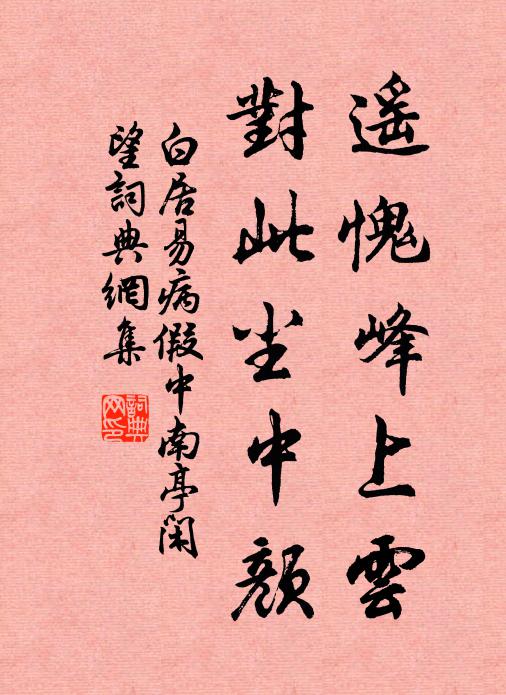 遥愧峰上雲
對此尘中顏
白居易病假中南亭闲
望詞典網集
詞典
网印